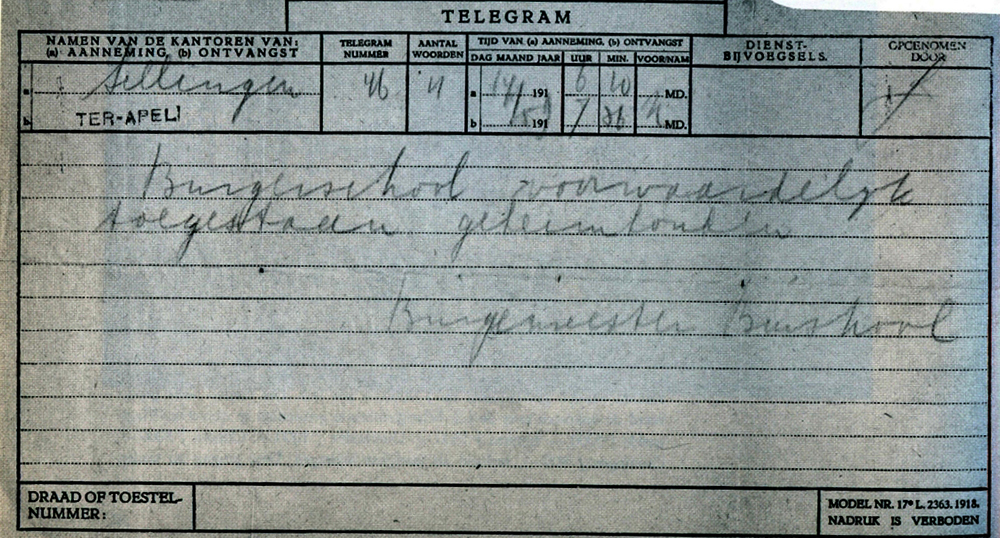 TELEGRAM
NAMEN VAN DE KANTOREN VAN: TELEGRAM AANTAL TIJD VAN (a) AANNEMING, (b) ONTVANGST DIENST- OPGENOMEN
(a) AANNEMING, (b) ONTVANGST NUMMER WOORDEN DAG MAAND JAAR UUR MIN. VOORNAM BIJVOEGSELS. DOOR
a Sellingen 46 11 a 14/ 191 6 10 MD.
b TER-APEL b 191 7 MD.
Burgerschool voorwaardelijk
toegestaan
Burgemeester Buiskool
DRAAD OF TOESTEL-
NUMMER:
MODEL NR. 17ᵉ L. 2363. 1918.
NADRUK IS VERBODEN